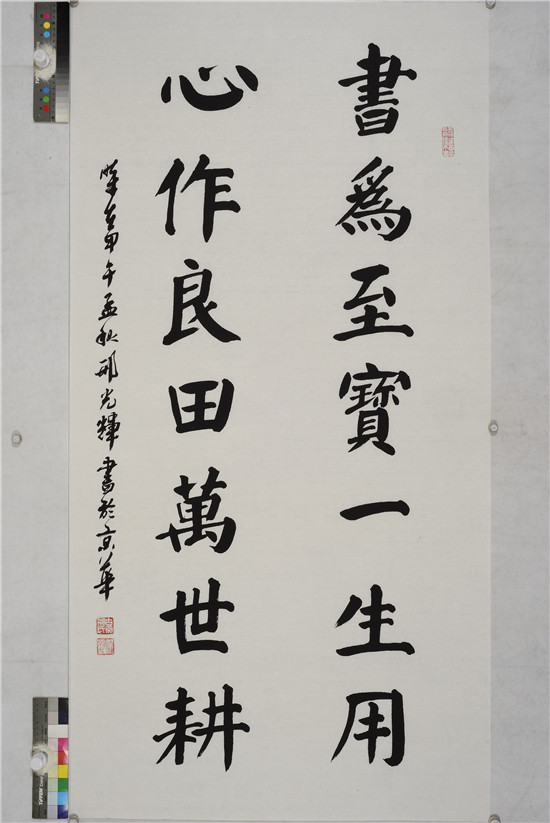 書為至寶一生用
心作良田萬世耕
歲在甲午孟秋邢光輝書於京華